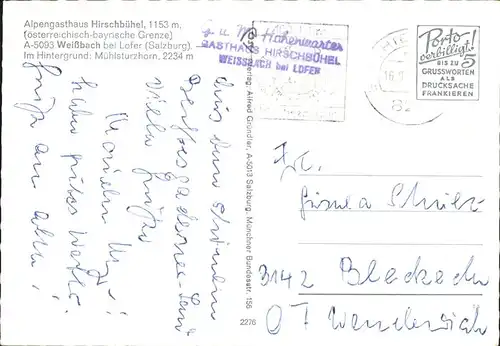 Alpengasthaus Hirschbühel, 1153 m,
(österreichisch-bayrische Grenze)
A-5093 Weißbach bei Lofer (Salzburg).
Im Hintergrund: Mühlsturzhorn, 2234 m
J. u. M. Hohenwarter
GASTHAUS HIRSCHBÜHEL
WEISSBACH bei LOFER
Porto
verbilligt!
BIS ZU
5
GRUSSWORTEN
ALS
DRUCKSACHE
FRANKIEREN
16.9
82
Aus dem schönen
Berchtesgadener-Land
viele Grüße
haben gutes Wetter.
Gruß an alle!
Verlag Alfred Gründler, A-5013 Salzburg, Münchner Bundesstr. 155
2276
Firma Schulz
3142 Bleckede
OT Wendewisch